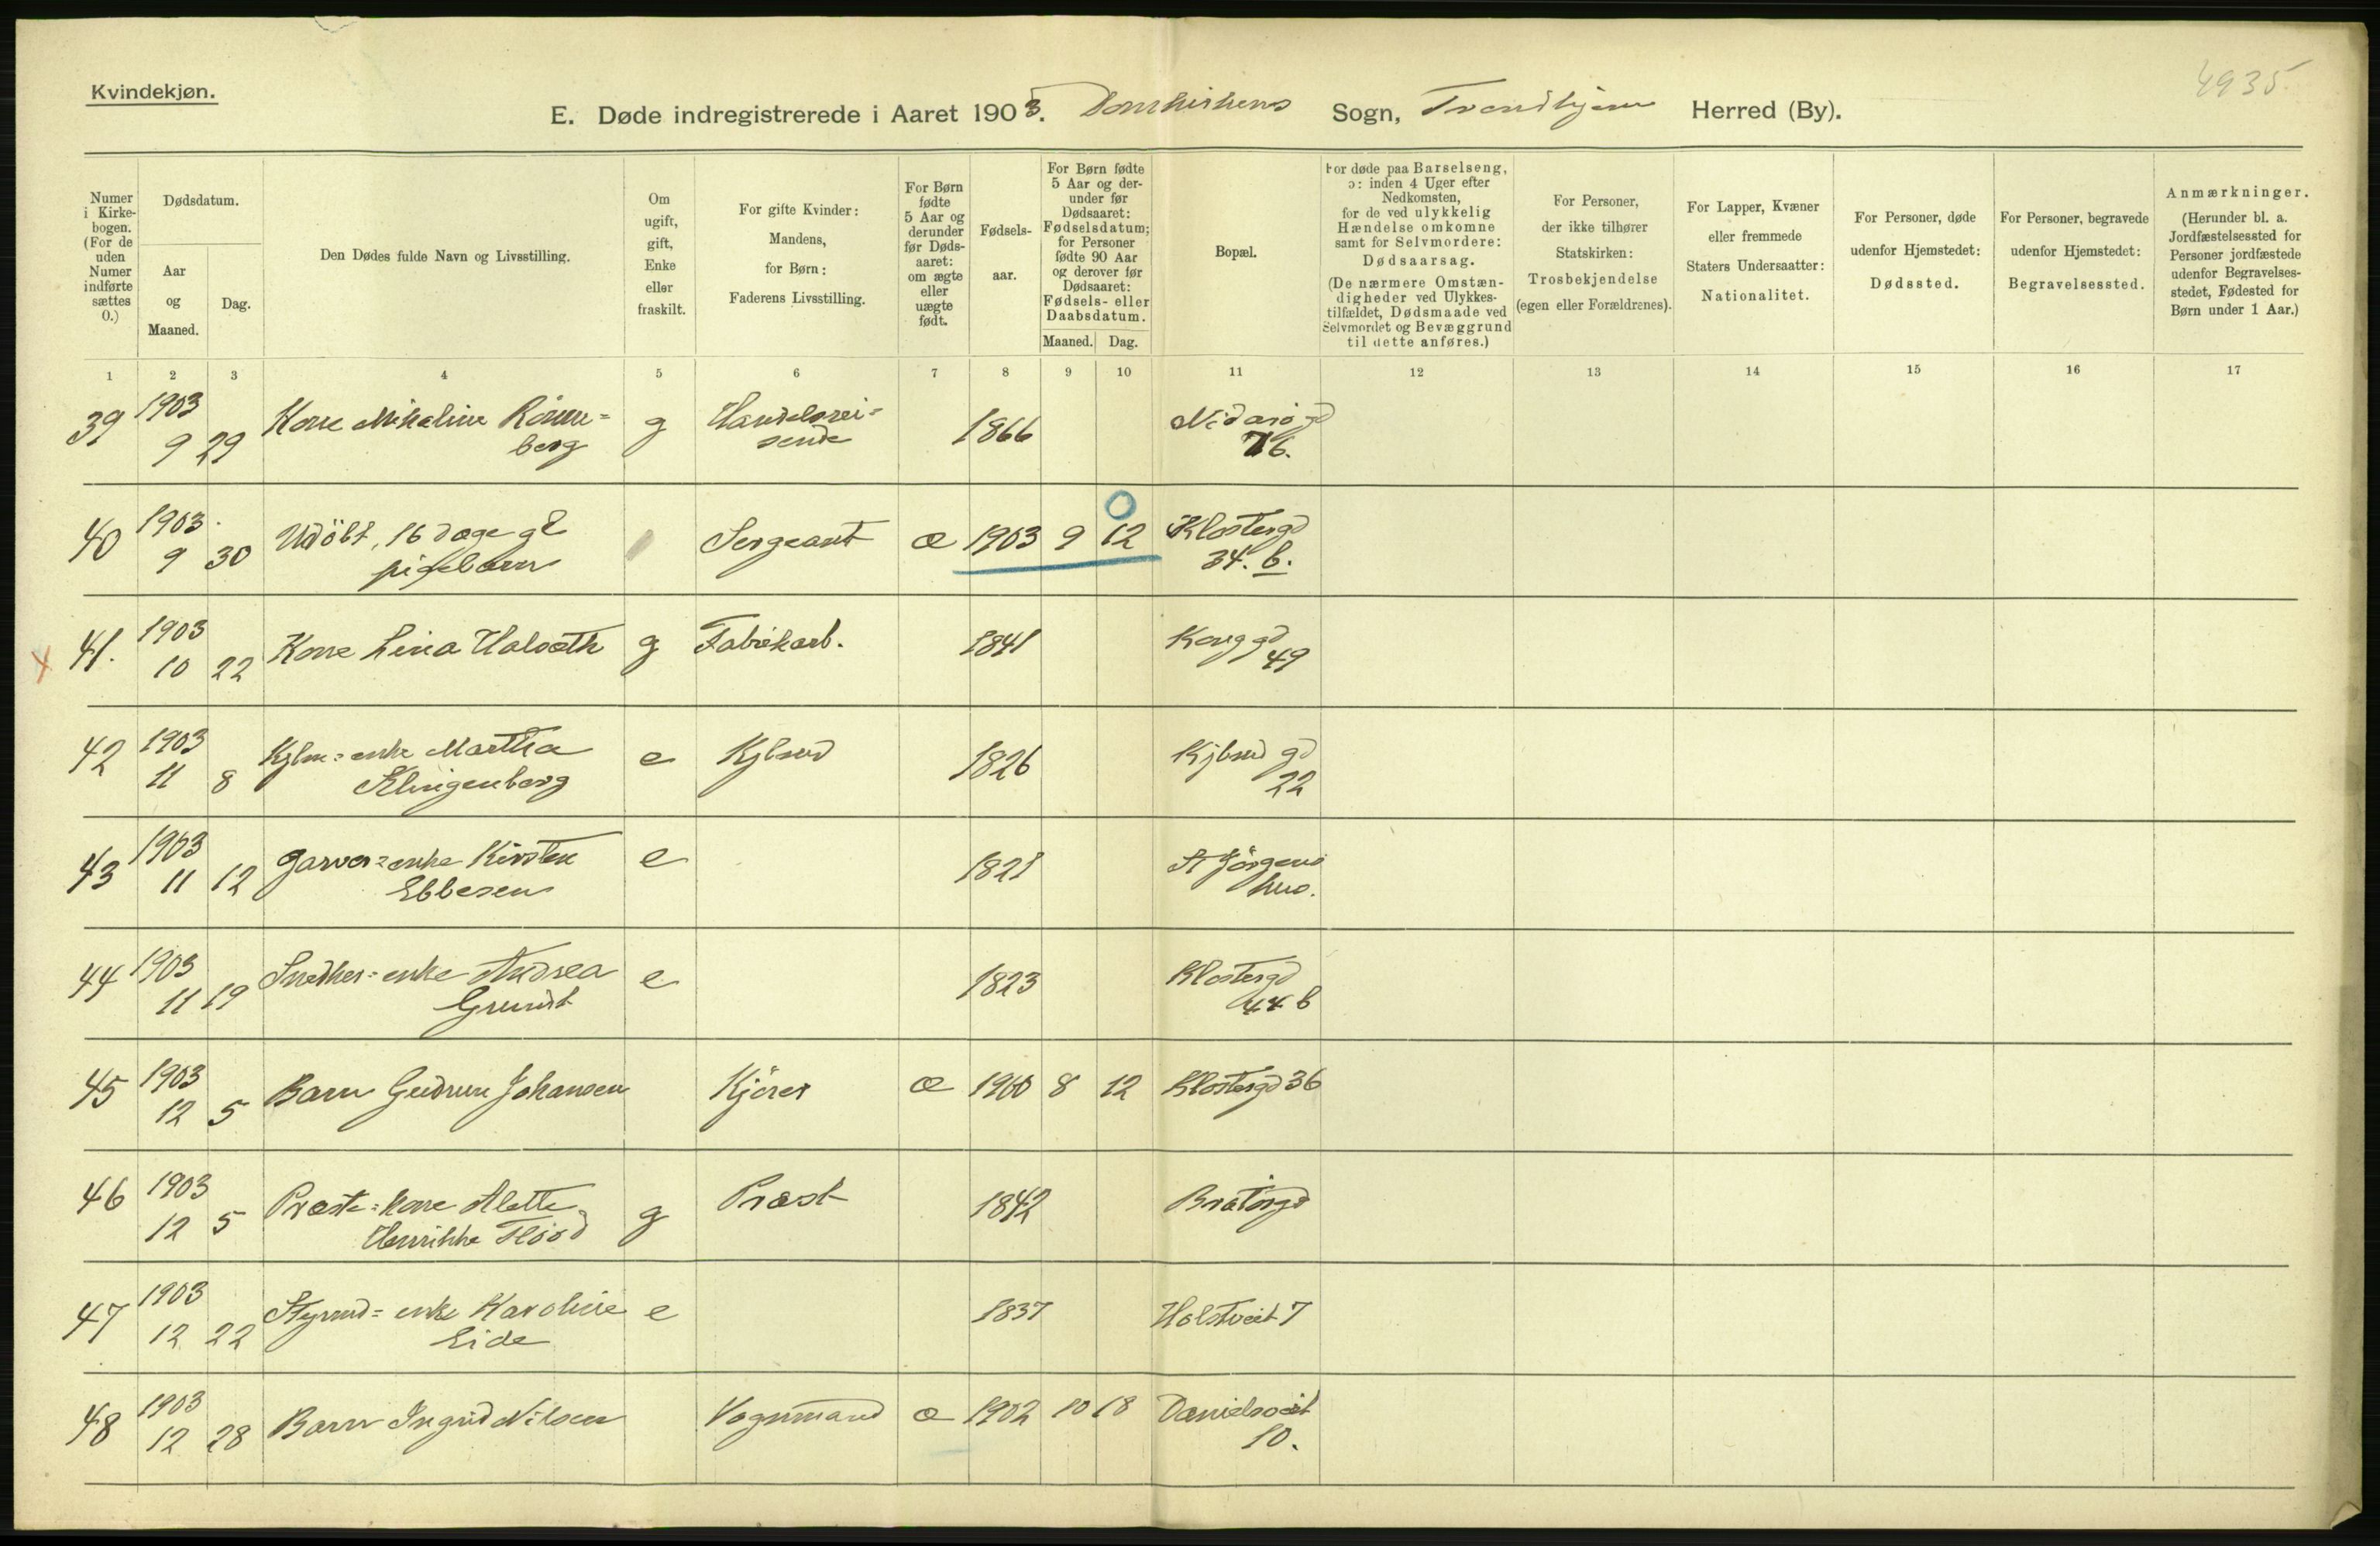 Kvindekjøn.
4935.
E. Døde indregistrerede i Aaret 1903. Domkirkens Sogn, Trondhjem Herred (By).
Numer i Kirkebogen. (For de uden Numer indførte sættes 0.)
Dødsdatum.
Aar og Maaned.
Dag.
Den Dødes fulde Navn og Livsstilling.
Om ugift, gift, Enke eller fraskilt.
For gifte Kvinder: Mandens, for Børn: Faderens Livsstilling.
For Børn fødte 5 Aar og derunder før Dødsaaret: om ægte eller uægte født.
Fødselsaar.
For Børn fødte 5 Aar og derunder før Dødsaaret: Fødselsdatum; for Personer fødte 90 Aar og derover før Dødsaaret: Fødsels- eller Daabsdatum.
Maaned. Dag.
Bopæl.
For døde paa Barselseng, ɔ: inden 4 Uger efter Nedkomsten, for de ved ulykkelig Hændelse omkomne samt for Selvmordere: Dødsaarsag.
(De nærmere Omstændigheder ved Ulykkestilfældet, Dødsmaade ved Selvmordet og Bevæggrund til dette anføres.)
For Personer, der ikke tilhører Statskirken: Trosbekjendelse (egen eller Forældrenes).
For Lapper, Kvæner eller fremmede Staters Undersaatter: Nationalitet.
For Personer, døde udenfor Hjemstedet: Dødssted.
For Personer, begravede udenfor Hjemstedet: Begravelsessted.
Anmærkninger.
(Herunder bl. a. Jordfæstelsessted for Personer jordfæstede udenfor Begravelsesstedet, Fødested for Børn under 1 Aar.)
1 2 3 4 5 6 7 8 9 10 11 12 13 14 15 16 17
39 1903 9 29 Kone Mikaline Rönneberg g Handelsreisende 1866 76.
40 1903 9 30 Udöbt, 16 dage gl pigebarn Sergeant æ 1903 9 12 Klostergd 34. b.
41. 1903 10 22 Kone Lina Halseth g Fabrikarb. 1841 Konggd 49
42 1903 11 8 enke Martha Klingenberg e Kjbmd 1826 Kjbmd gd 22
43 1903 11 12 Garver=enke Kirsten Ebbesen e 1821 St Jörgens hus.
44 1903 11 19 Snedker=enke Andrea Grundt e 1823 Klostergd 44 b
45 1903 12 5 Barn Gudrun Johansen Kjörer æ 1900 8 12 Klostergd 36
46 1903 12 5 Præste=kone Alette Henrikke Flood g Præst 1842 Bratörgd
47 1903 12 22 Styrmd=enke Karoline Eide e 1837 Holstveit 7
48 1903 12 28 Barn Ingrid Nilsen Vognmand æ 1902 10 18 Danielsveit 10.